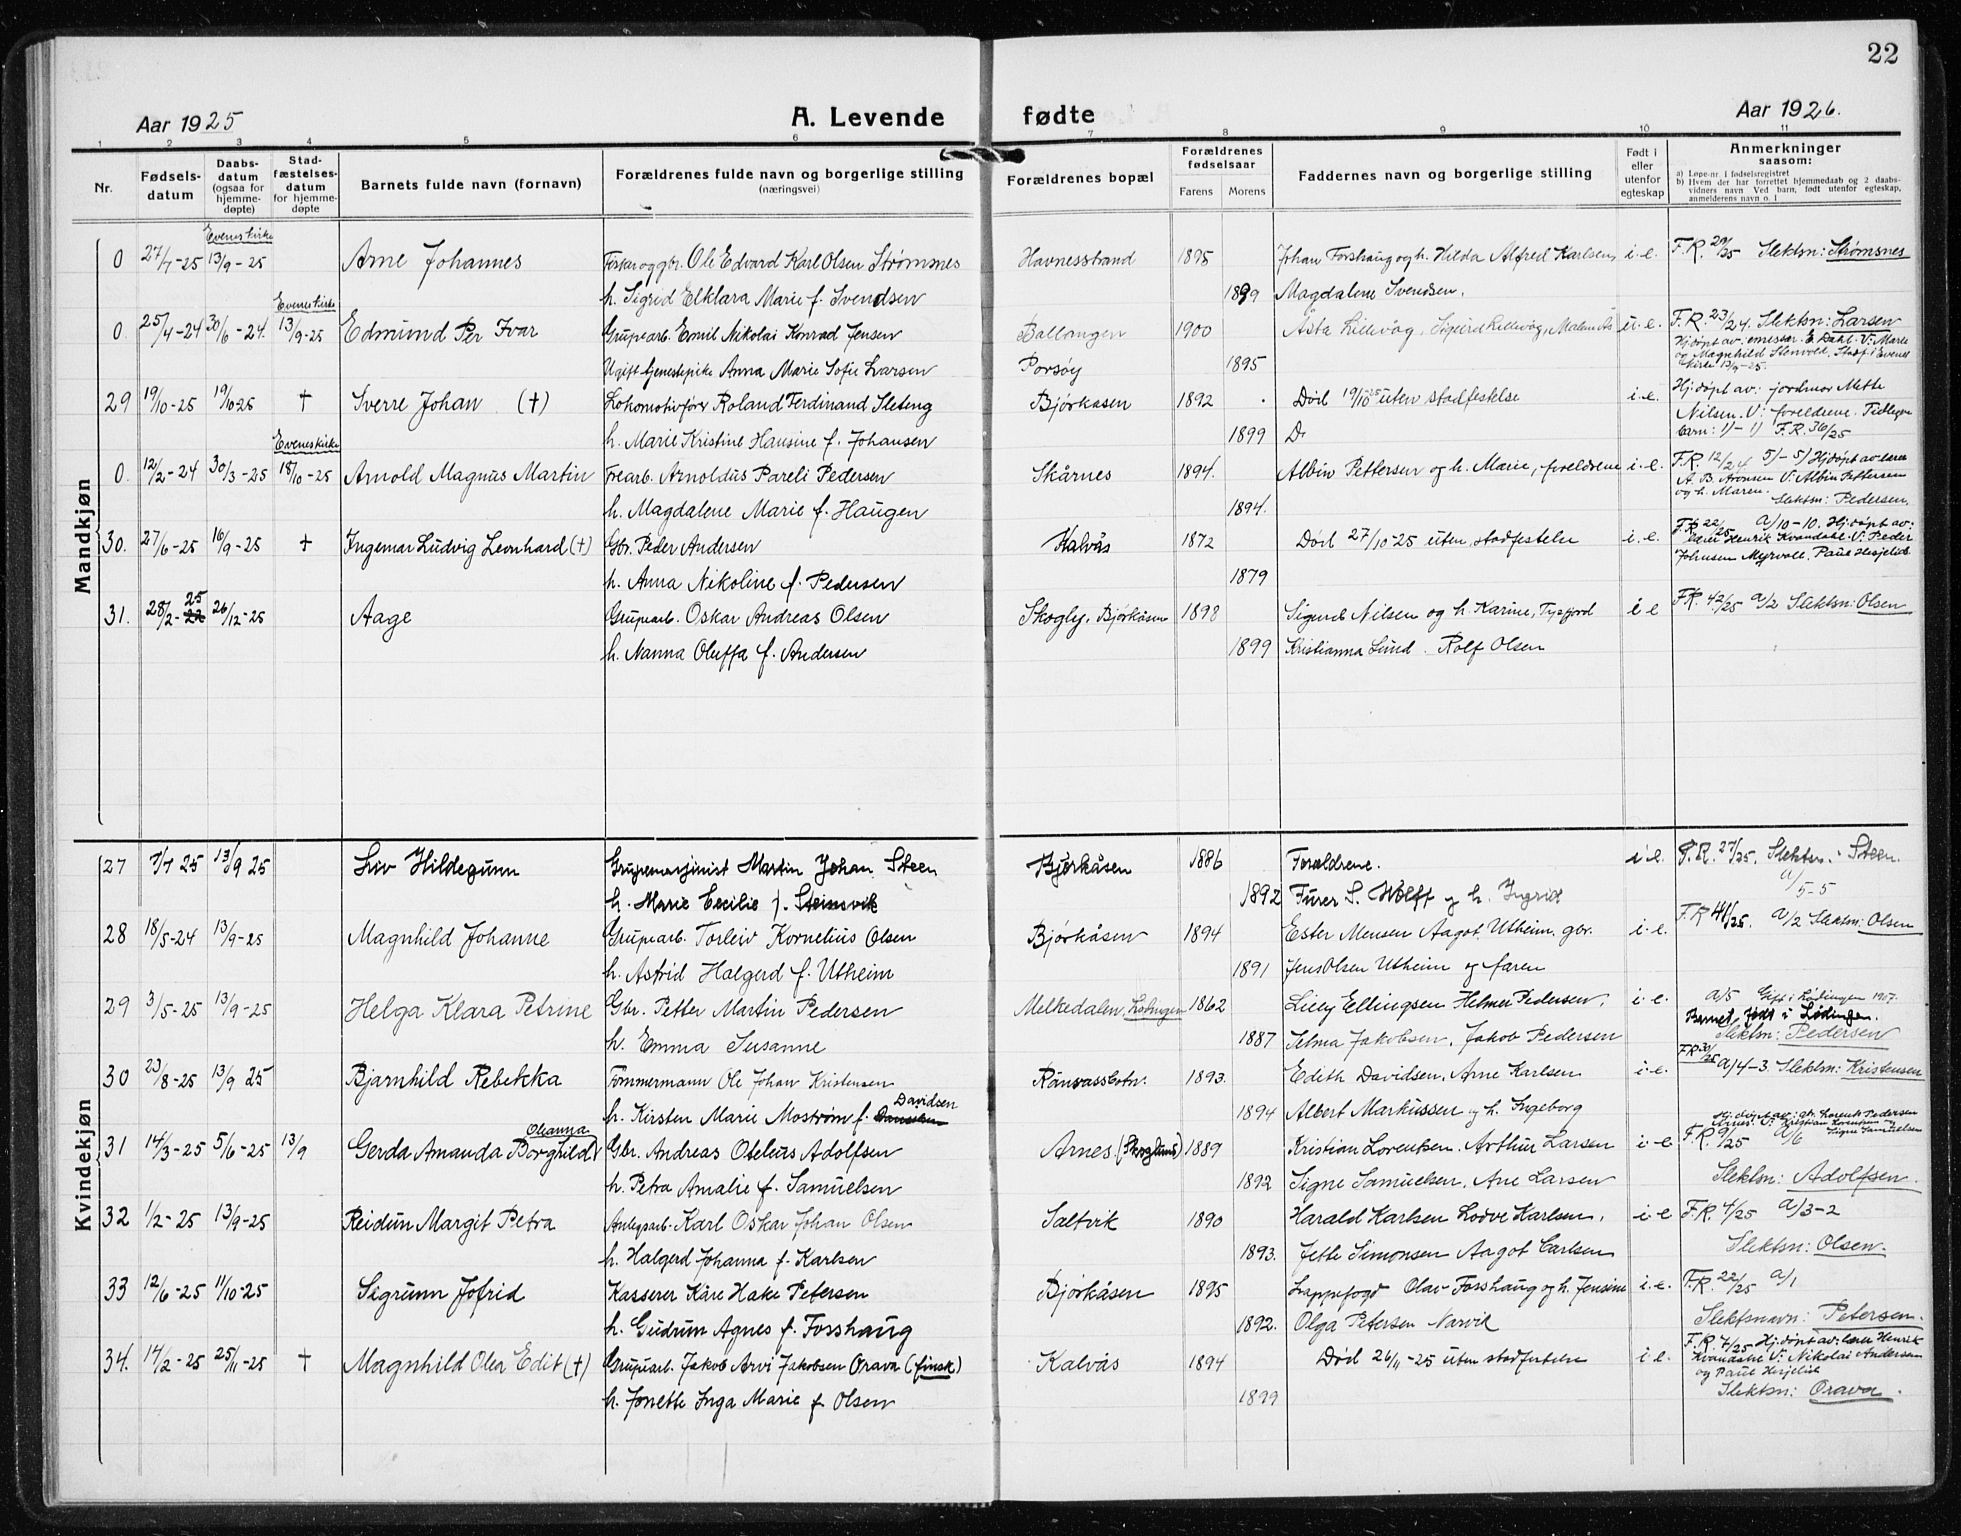 22
Aar 1925
A. Levende fødte
Aar 1926.
1 2 3 4 5 6 7 8 9 10 11
Nr.
Fødsels-datum
Daabs-datum (ogsaa for hjemme-døpte)
Stad-fæstelses-datum for hjemme-døpte
Barnets fulde navn (fornavn)
Forældrenes fulde navn og borgerlige stilling
(næringsvei)
Forældrenes bopæl
Forældrenes fødselsaar
Farens Morens
Faddernes navn og borgerlige stilling
Født i eller utenfor egteskap
Anmerkninger saasom:
a) Løpe-nr. i fødselsregistret
b) Hvem der har forrettet hjemmedaab og 2 daabs-
vidners navn Ved barn, født utenfor egteskap,
anmelderens navn o. l
Mandkjøn
Eveneskirke
0 27/7-25 13/9-25 Arne Johannes Fisker og gbr. Ole Edvard Karl Olsen Strømsnes Havnesstrand 1895 Johan Forshaug og h. Hilda Alfred Karlsen i.e. F.R. 29/25 Slektsn: Strømsnes
h. Sigrid Elklara Marie f. Svendsen 1899 Magdalene Svendsen.
Eveneskirke
0. 25/4-24 30/6-24. 13/9-25 Edmund Per Ivar Grupearb. Emil Nikolai Konrad Jensen Ballangen 1900 Asta Lillevåg, Sigurd Lillevåg, u.e. F.R. 23/24. Slektsn: Larsen
Hj.døpt av: emissær. E. Dahl. V: Marie
og Magnhild Stenvold. Stadf. i Evenes
kirke 13/9-25.
Ugift tjenestepike Anna Marie Sofie Larsen Porsøy 1895
29 19/10-25 19/10 25 † Sverre Johan (†) Lokomotivfører Roland Ferdinand Sleteng Bjørkåsen 1892 Død 19/10-25 uten stadfestelse i.e. Hj.døpt av: jordmor Mette
Nilsen. V: foreldrene. Tidligere
barn: 1)-1) F.R. 36/25
h. Marie Kristine Hansine f. Johansen 1899 D.
Eveneskirke
0. 12/2-24 30/3-25 18/10-25 Arnold Magnus Martin Frearb. Arnoldus Pareli Pedersen Skårnes 1894. Albin Pettersen og h. Marie, foreldrene i.e. F.R. 12/24 5)-5) Hj.døpt av lærer
A. B. Aronsen V: Albin Pettersen
og h. Maren.
Slektsn: Pedersen.
h. Magdalene Marie f. Haugen 1894.
30. 27/6-25 16/9-25 † Ingemar Ludvig Leonhard (†) Gbr. Peder Andersen Kalvås 1872 Død 27/10-25 uten stadfestelse i.e. F.R. 22/25 a/10-10. Hj.døpt av:
lærer Henrik Kvandahl. V: Peder
Johnsen Myrvoll. Paul Hesjelid.
h. Anna Nikoline f. Pedersen 1879
31. 28/2-22 25 26/12-25 Aage Grupearb. Oskar Andreas Olsen Skogly, Bjørkåsen 1898 Sigurd Nilsen og h. Karine, Tysfjord i e F.R. 42/25 a/2 Slektsn: Olsen
h. Nanna Oluffa f. Andersen 1899 Kristianna Lund. Rolf Olsen
Kvindekjøn
27 7/7 25 13/9 25 Liv Hildegunn Grupemaskinist Martin Johan Steen Bjørkåsen 1886 Forældrene. i e. F.R. 27/25. Slektsn.: Steen.
a/5-5
h. Marie Cecilie f. Steinsvik 1892 Furer S. Wolff og h. Ingrid
28 18/5-24 13/9-25 Magnhild Johanne Grupearb. Torleiv Kornelius Olsen Bjørkåsen 1894 Ester Mensen Aagot Utheim, gbr. i.e. F.R. 41/25. a/2 Slektsn: Olsen
h. Astrid Halgerd f. Utheim 1891 Jens Olsen Utheim og faren
29 3/5-25 13/9-25 Helga Klara Petrine Gbr. Petter Martin Pedersen Melkedalen, Lødingen 1862 Lilly Ellingsen Helmer Pedersen, i.e. a/5 Gift i Lødingen 1907.
Barnet født i Lødingen.
Slektsn: Pedersen
h. Emma Susanne 1887 Selma Jakobsen, Jakob Pedersen
30 23/8-25 13/9 25 Bjarnhild Rebekka Tømmermann Ole Johan Kristensen Rånvassbotn. 1893. Edith Davidsen, Arne Karlsen i.e. F.R 30/25 a/4-3. Slektsn: Kristensen
h. Kirsten Marie Mostrøm f. Davidsen 1894 Albert Markussen og h. Ingeborg
31 14/3-25 5/6-25 13/9 Gerda Amanda Borghild Oleanna Gbr. Andreas Otelius Adolfsen Arnes (Skoglund) 1889 Kristian Lorentsen. Arthur Larsen i.e. Hj.døpt av: gb. Lorents Pedersen
Arnes. V: Kristian Lorentsen og
Signe Samuelsen
F.R. 9/25 a/6
Slektsn: Adolfsen.
h. Petra Amalie f. Samuelsen 1892 Signe Samuelsen, Ane Larsen
32 1/2-25 13/9-25 Reidun Margit Petra Anlegsarb. Karl Oskar Johan Olsen Saltvik 1890 Harald Karlsen Lodve Karlsen, i.e F.R. 4/25 a/3-2
Slektsn: Olsen.
h. Halgerd Johanna f. Karlsen 1893. Jette Simonsen Aagot Carlsen
33 12/6-25 11/10-25 Sigrunn Jofrid Kasserer Kåre Hake Petersen Bjørkåsen 1895 Lappefogd Olav Forshaug og h. Jensine i.e. F.R. 22/25 a/1
Slektsnavn: Petersen.
h. Gudrun Agnes f. Fosshaug 1892. Olga Petersen Narvik
34. 14/2-25 25/11-25 † Magnhild Olea Edit (†) Grupearb. Jakob Arvi Jakobsen Orava (finsk) Kalvås 1894 Død 26/11-25 uten stadfestelse i.e. F.R. 7/25 Hj.døpt av: lærer Henrik
Kvandahl V: Nikolai Andersen
og Paul Hesjelid
Slektsn: Orava.
h. Jonette Inga Marie f Olsen 1899